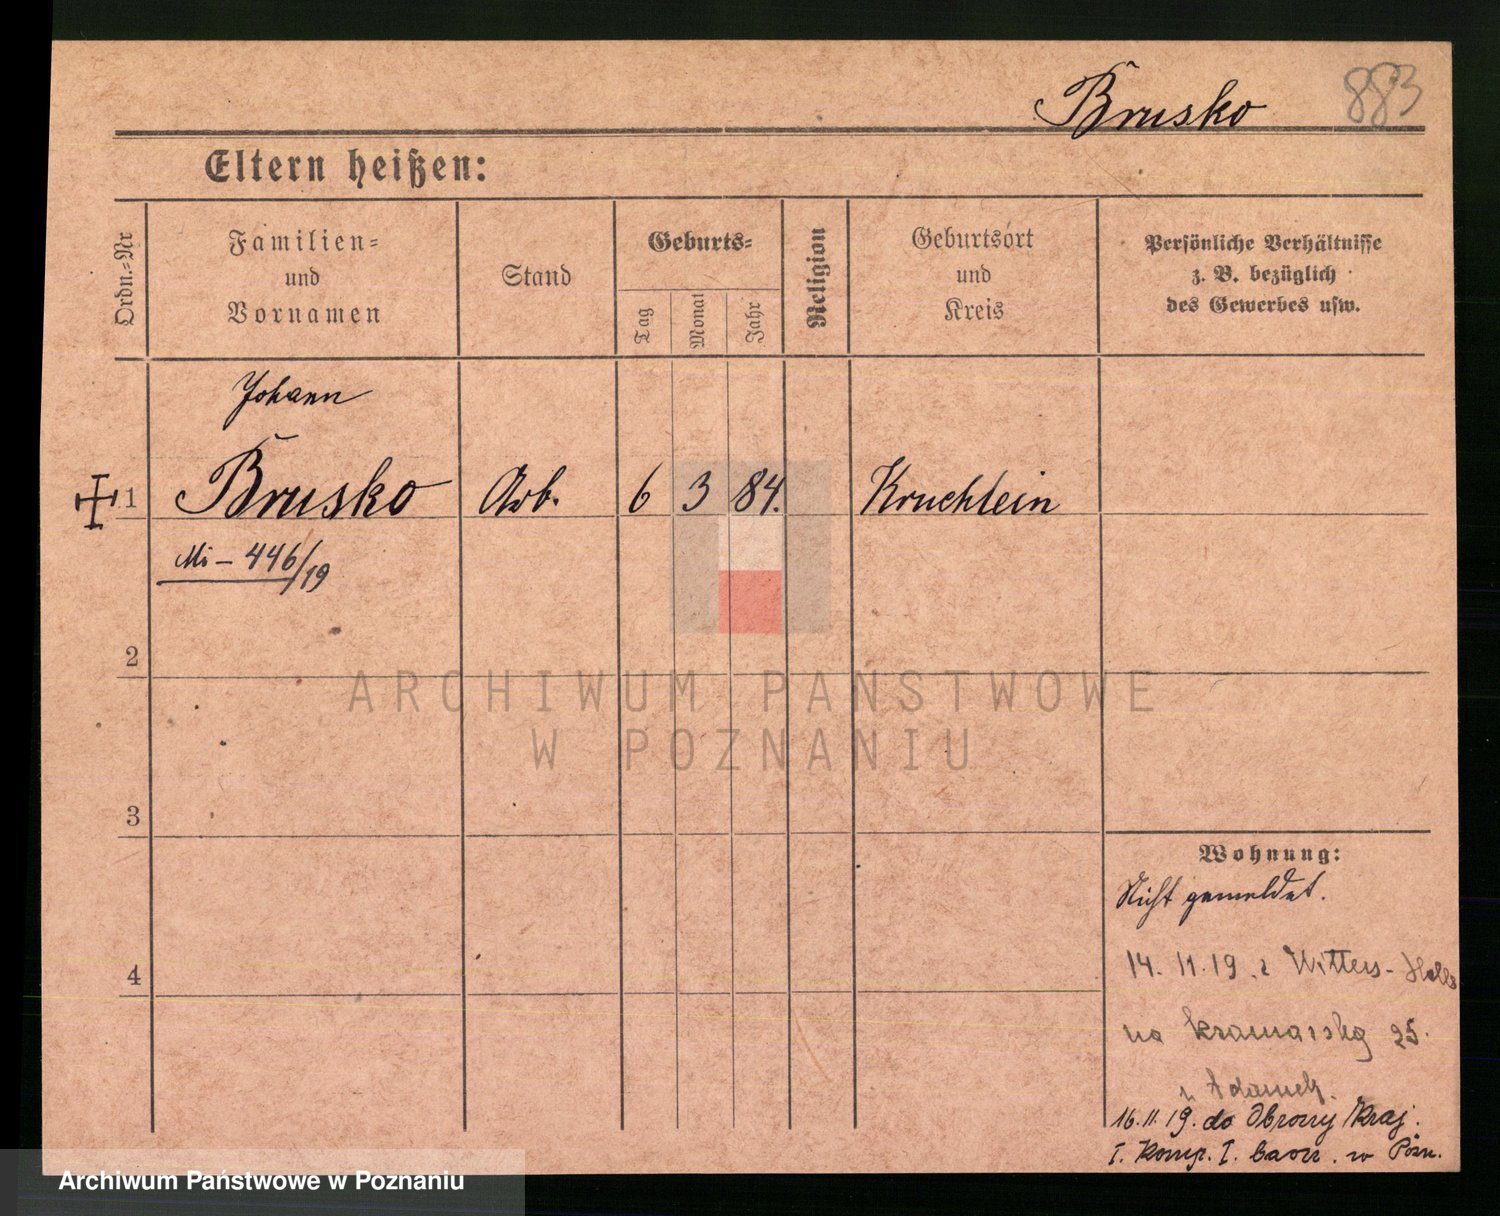 Brusko
883
Eltern heißen:
Ordn.-Nr
Familien-
und
Vornamen
Stand
Geburts-
Tag
Monat
Jahr
Religion
Geburtsort
und
Kreis
Persönliche Verhältnisse
z. B. bezüglich
des Gewerbes usw.
Johann
1 Brusko Arb. 6 3 84. Kruchlein
Mi - 446/19
2
ARCHIWUM PAŃSTWOWE
W POZNANIU
3
4
Wohnung:
Nicht gemeldet.
14.11.19. z Witters-
na kramarską 25.
u Adamch.
16.11.19. do Obrony Kraj.
I. Komp. I. w Pozn.
Archiwum Państwowe w Poznaniu